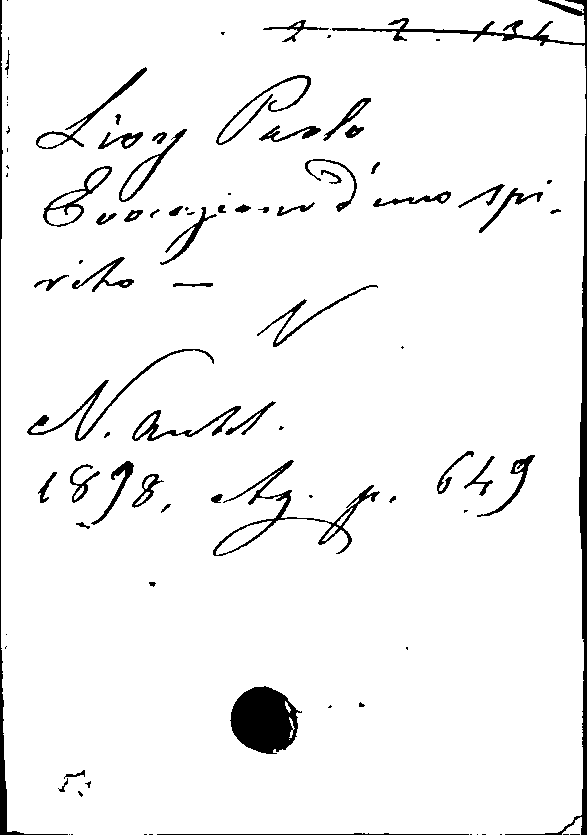 2. 2. 134
Lioy Paolo
Evocazione d'uno spi-
rito —
N
N. Antol.
1898, Ag. p. 649